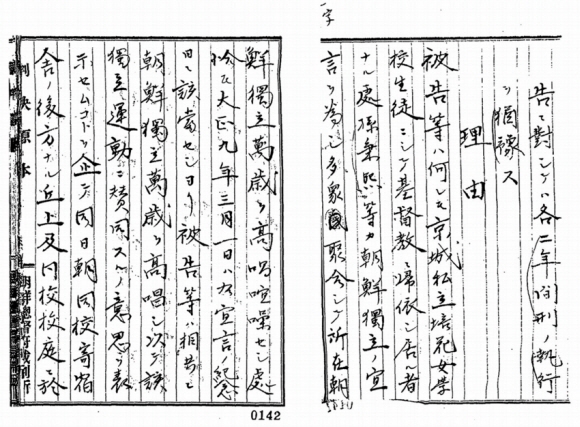 字
告ニ對シテハ各二年間刑ノ執行
ヲ猶豫ス
理由
被告等ハ何レモ京城私立培花女學
校生徒ニシテ基督教ニ歸依シ居ル者
ナル處孫秉熙等カ朝鮮獨立ノ宣
言ヲ為シ多衆聚合シテ所在朝
鮮獨立萬歳ヲ高唱喧噪セシ處
恰モ大正九年三月一日ハ右宣言ノ紀念
日ニ該當セシヨリ被告等ハ相共ニ
朝鮮獨立萬歳ヲ高唱シ以テ該
獨立運動ニ賛同スルノ意思ヲ表
示セムコトヲ企テ同日朝同校寄宿
舎ノ後方ナル丘上及同校校庭ニ於
判決原本
朝鮮總督府裁判所
0142